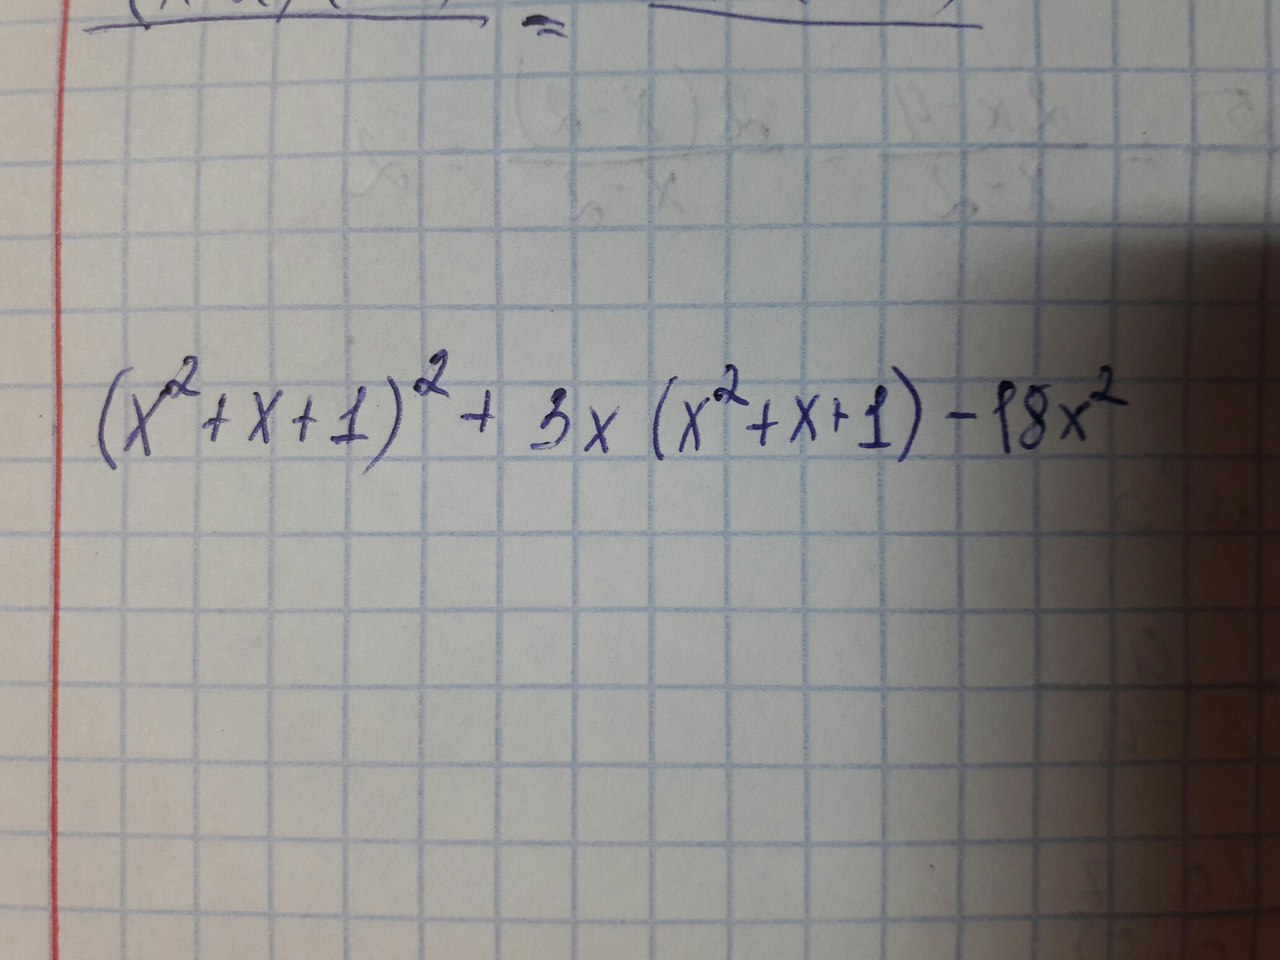 =
(x²+x+1)²+3x(x²+x+1)-18x²